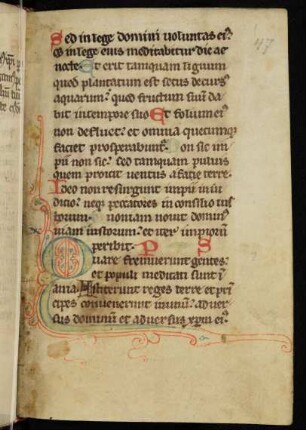 47
Sed in lege domini voluntas ei᾽
et in lege eius meditabitur die ac
nocte. Et erit tamquam lignum
quod plantatum est secus decurs᾽
aquarum: quod fructum suum da
bit in tempore suo Et folium ei᾽
non defluet: et omnia quecumque
faciet prosperabunt᾽. Non sic im
pii non sic: sed tamquam puluis
quem proicit uentus a facie terre.
Ideo non resurgunt impii in iu
dicio: neque peccatores in consilio ius
torum. Quoniam nouit dominus
uiam iustorum: et iter impiorum
peribit. P S
Quare fremuerunt gentes:
et populi meditati sunt i
ania. Astiterunt reges terre et prin
cipes conuenerunt in unum: aduer
sus dominum et aduersus xpm ei᾽.